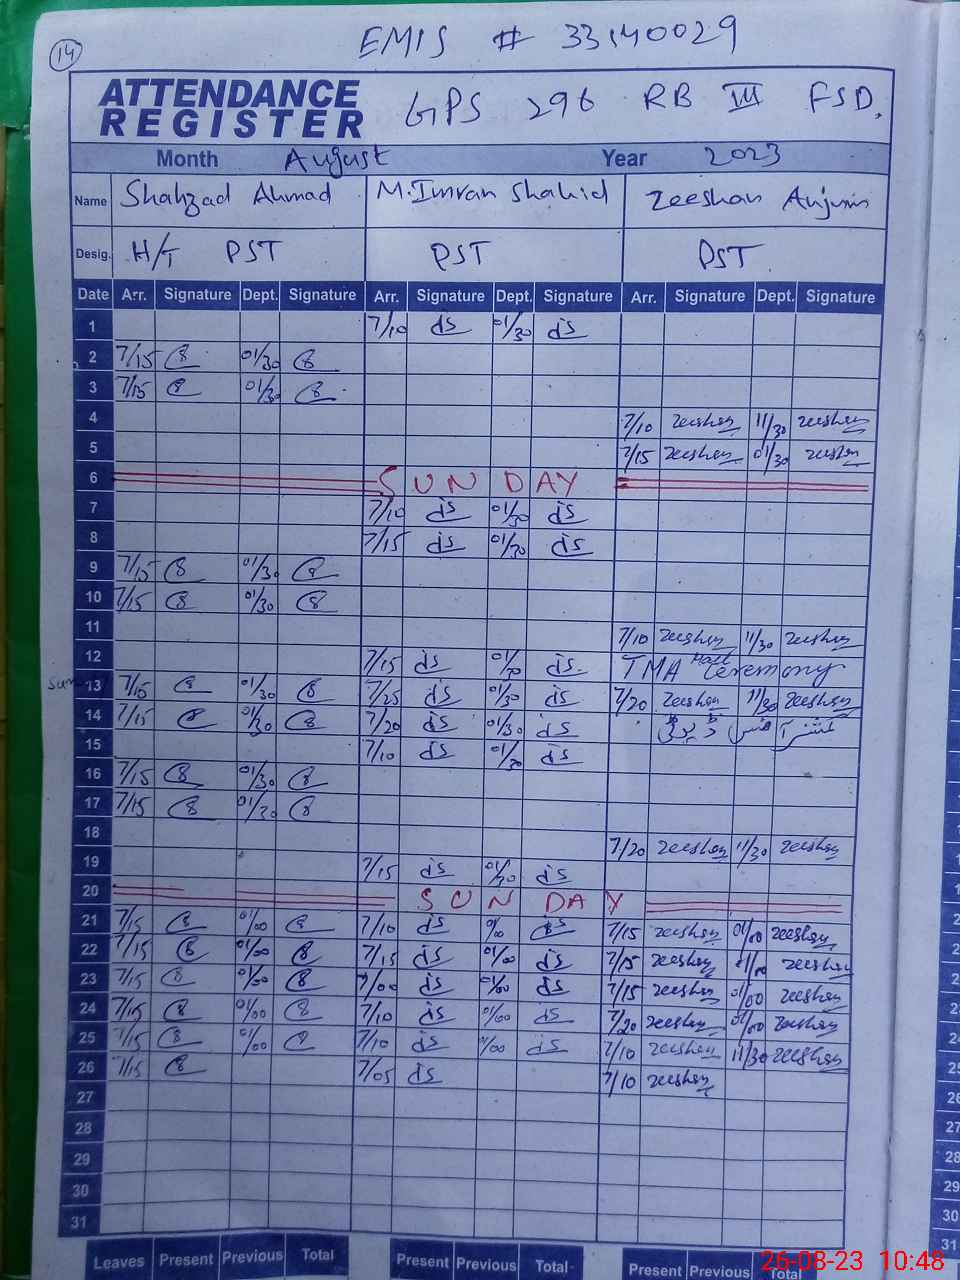 14
EMIS # 33140029
ATTENDANCE REGISTER GPS 296 RB III FSD.
Month August Year 2023
Name Shahzad Ahmad M. Imran Shahid Zeeshan Anjum
Desig. H/T PST PST PST
Date Arr. Signature Dept. Signature Arr. Signature Dept. Signature Arr. Signature Dept. Signature
1 7/10 01/30
2 7/15 01/30
3 7/15 01/30
4 7/10 zeeshan 11/30 zeeshan
5 7/15 zeeshan 01/30 zeeshan
6 SUNDAY
7 7/10 01/30
8 7/15 01/30
9 7/15 01/30
10 7/15 01/30
11 7/10 zeeshan 11/30 zeeshan
12 7/15 01/30 TMA Hall Ceremony
Sun 13 7/15 01/30 7/25 01/30 7/20 zeeshan 11/30 zeeshan
14 7/15 01/30 7/20 01/30 کمشنر آفس ڈیوٹی
15 7/10 01/30
16 7/15 01/30
17 7/15 01/30
18 7/20 zeeshan 11/30 zeeshan
19 7/15 01/30
20 SUNDAY
21 7/15 01/00 7/10 01/00 7/15 zeeshan 01/00 zeeshan
22 7/15 01/00 7/15 01/00 7/15 zeeshan 01/00 zeeshan
23 7/15 01/00 7/00 01/00 7/15 zeeshan 01/00 zeeshan
24 7/15 01/00 7/10 01/00 7/20 zeeshan 01/00 zeeshan
25 7/15 01/00 7/10 01/00 7/10 zeeshan 11/30 zeeshan
26 7/15 7/05 7/10 zeeshan
27
28
29
30
31
Leaves Present Previous Total Present Previous Total Present Previous Total
26-08-23 10:48